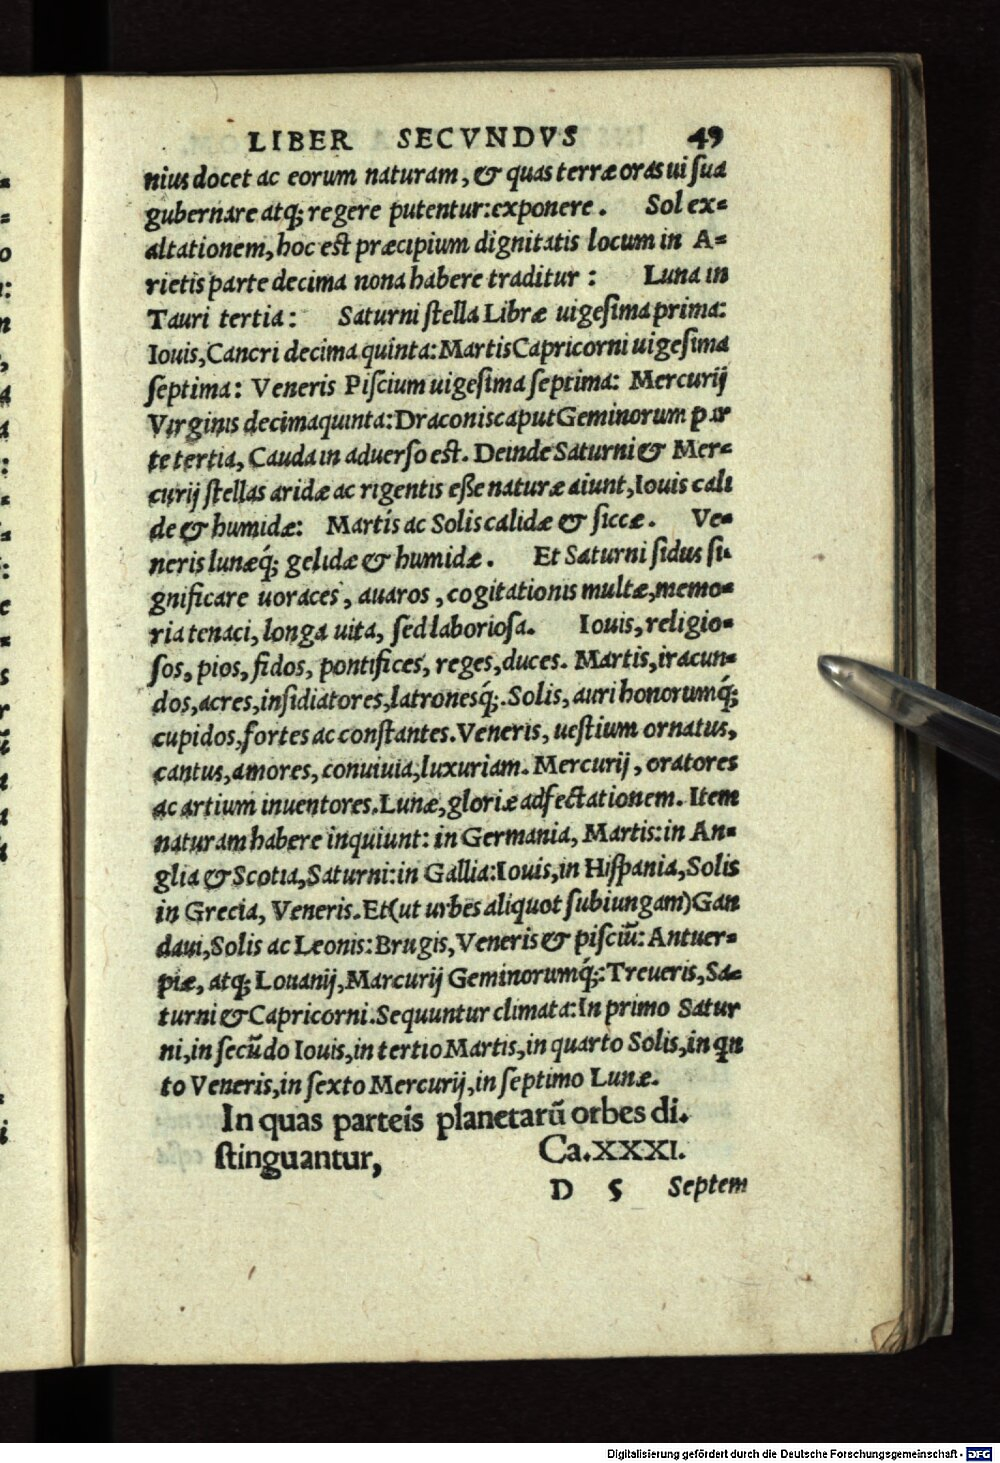 LIBER SECVNDVS 49
nius docet ac eorum naturam, & quas terræ oras ui sua
gubernare atq; regere putentur: exponere. Sol ex=
altationem, hoc est præcipium dignitatis locum in A=
rietis parte decima nona habere traditur : Luna in
Tauri tertia : Saturni stella Libræ uigesima prima:
Iouis, Cancri decima quinta: Martis Capricorni uigesima
septima: Veneris Piscium uigesima septima: Mercurij
Virginis decimaquinta: Draconis caput Geminorum par
te tertia, Cauda in aduerso est. Deinde Saturni & Mer=
curij stellas aridæ ac rigentis esse naturæ aiunt, Iouis cali
de & humidæ: Martis ac Solis calidæ & siccæ. Ve=
neris lunæq́; gelidæ & humidæ. Et Saturni sidus si=
gnificare uoraces, auaros, cogitationis multæ, memo=
ria tenaci, longa uita, sed laboriosa. Iouis, religio=
sos, pios, fidos, pontifices, reges, duces. Martis, iracun=
dos, acres, insidiatores, latronesq́;. Solis, auri honorumq́;
cupidos, fortes ac constantes. Veneris, uestium ornatus,
cantus, amores, conuiuia, luxuriam. Mercurij, oratores
ac artium inuentores. Lunæ, gloriæ adfectationem. Item
naturam habere inquiunt: in Germania, Martis: in An=
glia & Scotia, Saturni: in Gallia: Iouis, in Hispania, Solis
in Grecia, Veneris. Et (ut urbes aliquot subiungam) Gan
daui, Solis ac Leonis: Brugis, Veneris & pisciũ: Antuer=
piæ, atq; Louanij, Marcurij Geminorumq́;: Treueris, Sa=
turni & Capricorni. Sequuntur climata: In primo Satur
ni, in secũdo Iouis, in tertio Martis, in quarto Solis, in qn
to Veneris, in sexto Mercurij, in septimo Lunæ.
In quas parteis planetarũ orbes di.
stinguantur, Ca.XXXI.
D 5 Septem
Digitalisierung gefördert durch die Deutsche Forschungsgemeinschaft - DFG